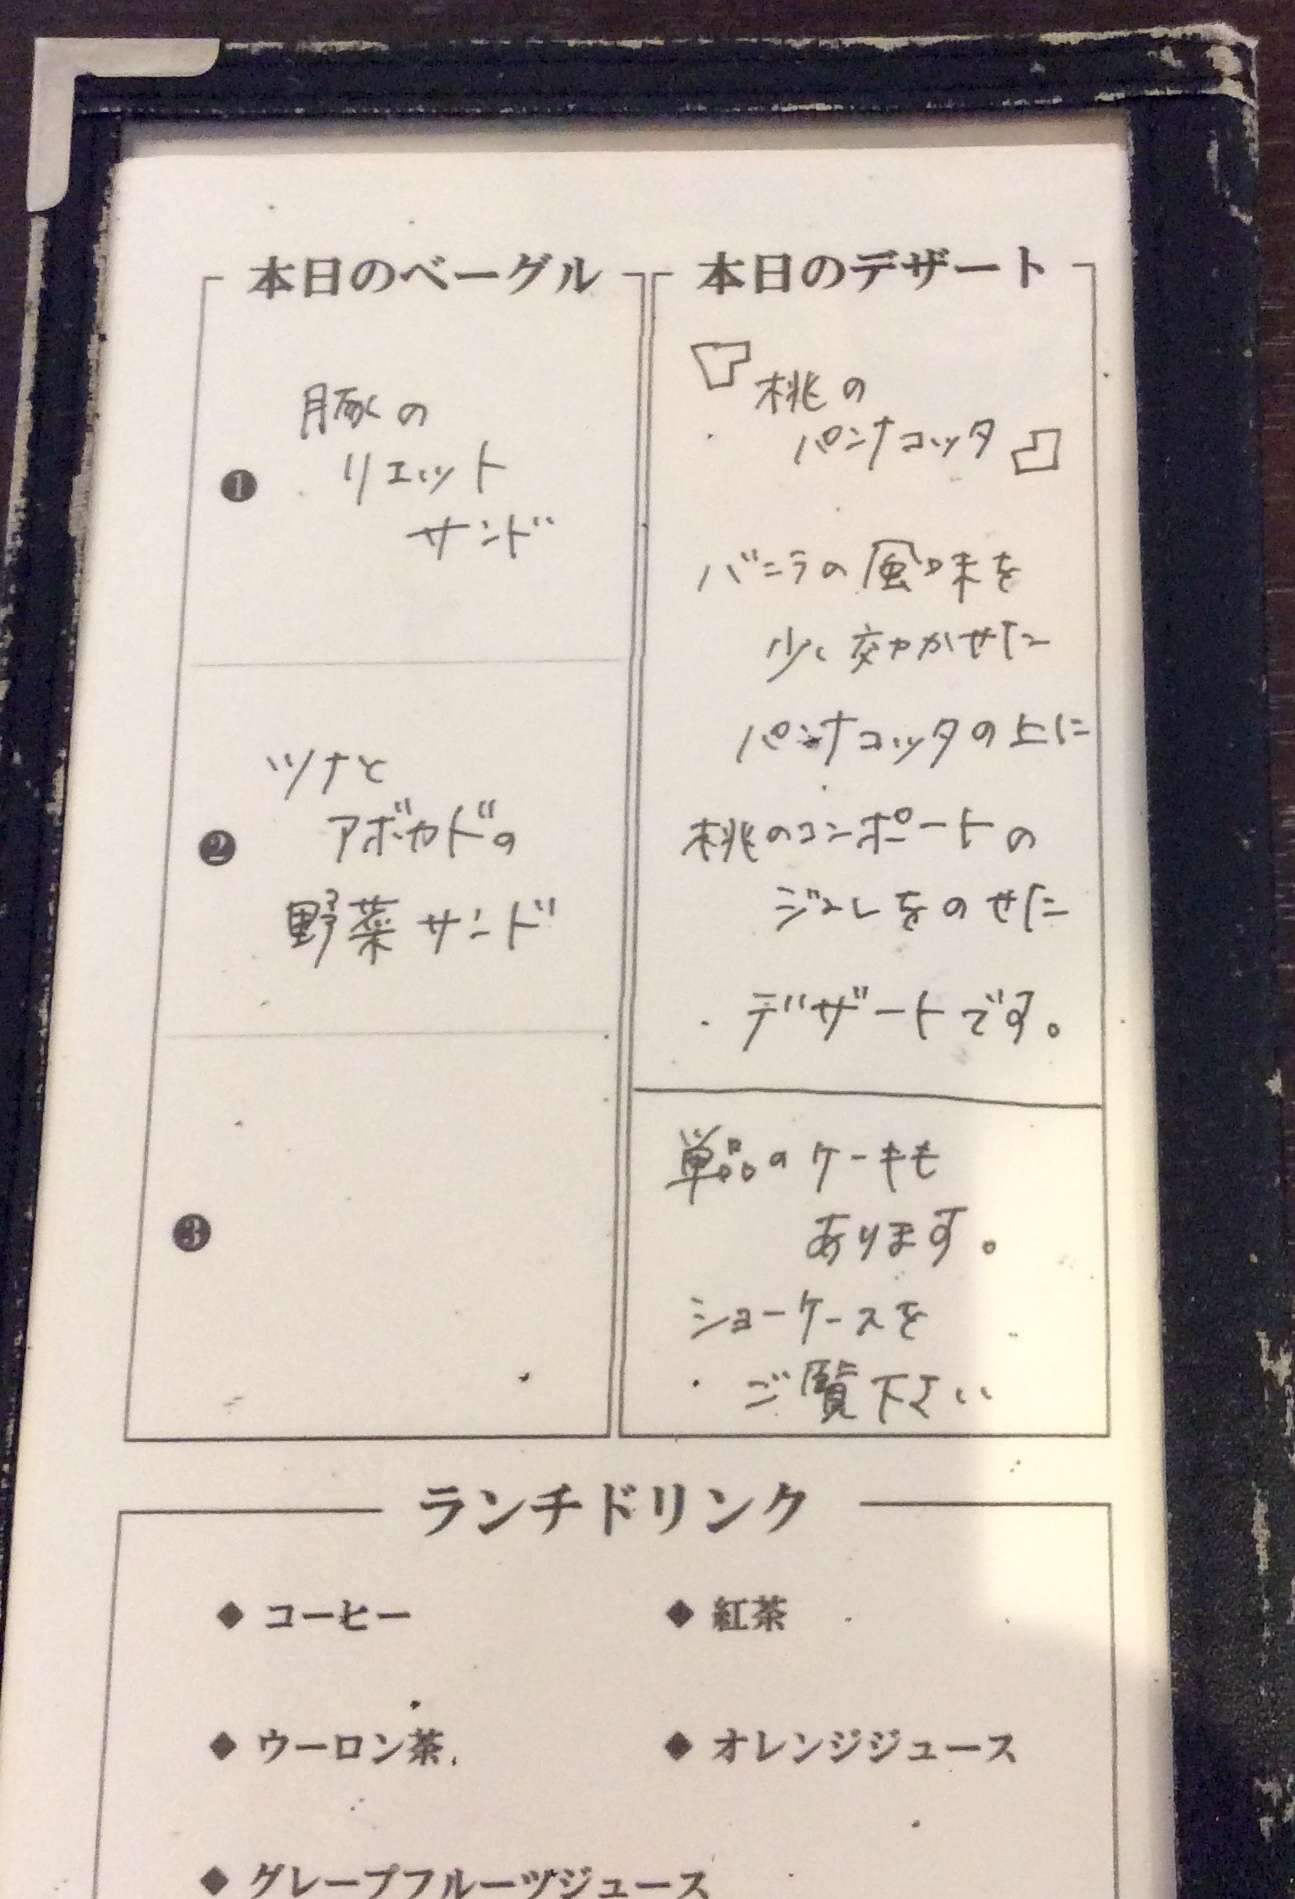 本日のベーグル
❶
豚の
リエット
サンド
❷
ツナと
アボカドの
野菜サンド
❸
本日のデザート
「桃の
パンナコッタ」
バニラの風味を
少し効かせた
パンナコッタの上に
桃のコンポートの
ジュレをのせた
デザートです。
単品のケーキも
あります。
ショーケースを
ご覧下さい
ランチドリンク
◆ コーヒー
◆ 紅茶
◆ ウーロン茶
◆ オレンジジュース
◆ グレープフルーツジュース